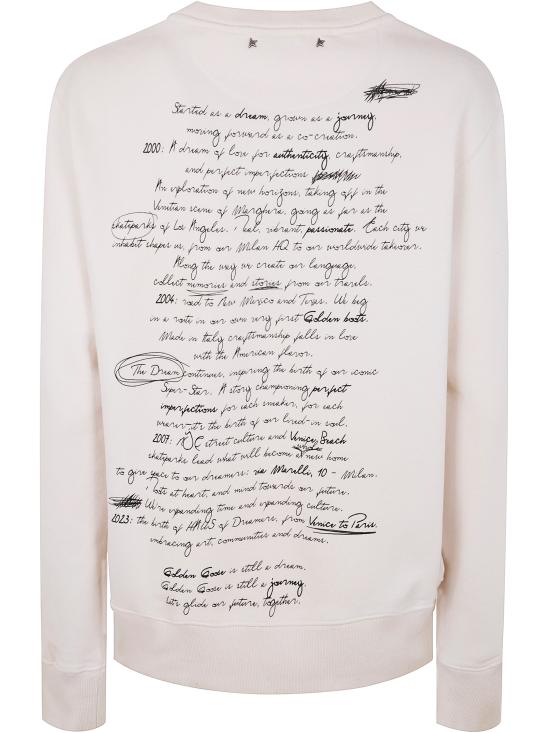 Started as a dream, grown as a journey,
moving forward as a co-creation.
2000: A dream of love for authenticity, craftsmanship,
and perfect imperfections
An exploration of new horizons, taking off in the
Venetian scene of Marghera, going as far as the
skateparks of Los Angeles. Real, vibrant, passionate. Each city we
inhabit shapes us, from our Milan HQ to our worldwide takeover.
Along the way we create our language,
collect memories and stories from our travels.
2004: road to New Mexico and Texas. We beg
in a route in our own very first Golden boots.
Made in Italy craftsmanship falls in love
with the American flavor.
The Dream continues, inspiring the birth of our iconic
Super-Star. A story championing perfect
imperfections for each sneaker, for each
wearer-it's the birth of our lived-in soul.
2007: street culture and Venice Beach
skateparks lead what will become a new home
to give space to our dreamers: via Morelli, 10 - Milan.
boots at heart, and mind towards our future.
We're expanding time and expanding culture.
2023: the birth of HAUS of Dreamers, from Venice to Paris
embracing art, communities and dreams.
Golden Goose is still a dream.
Golden Goose is still a journey,
Let's glide our future, together.